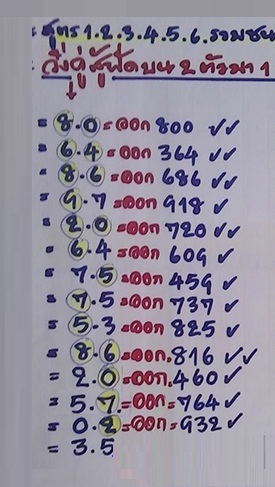 สูตร 1.2.3.4.5.6.รวมชน
วิ่งคู่สู้ฟัดบน 2 ตัวมา 1
= 8.0 = ออก 800 ✓✓
= 6.4 = ออก 364 ✓✓
= 8.6 = ออก 686 ✓✓
= 9.7 = ออก 918 ✓
= 2.0 = ออก 720 ✓✓
= 6.4 = ออก 609 ✓
= 7.5 = ออก 459 ✓
= 7.5 = ออก 737 ✓
= 5.3 = ออก 825 ✓
= 8.6 = ออก.816 ✓✓
= 2.0 = ออก.460 ✓
= 5.7. = ออก = 764 ✓
= 0.2 = ออก = 932 ✓
= 3.5